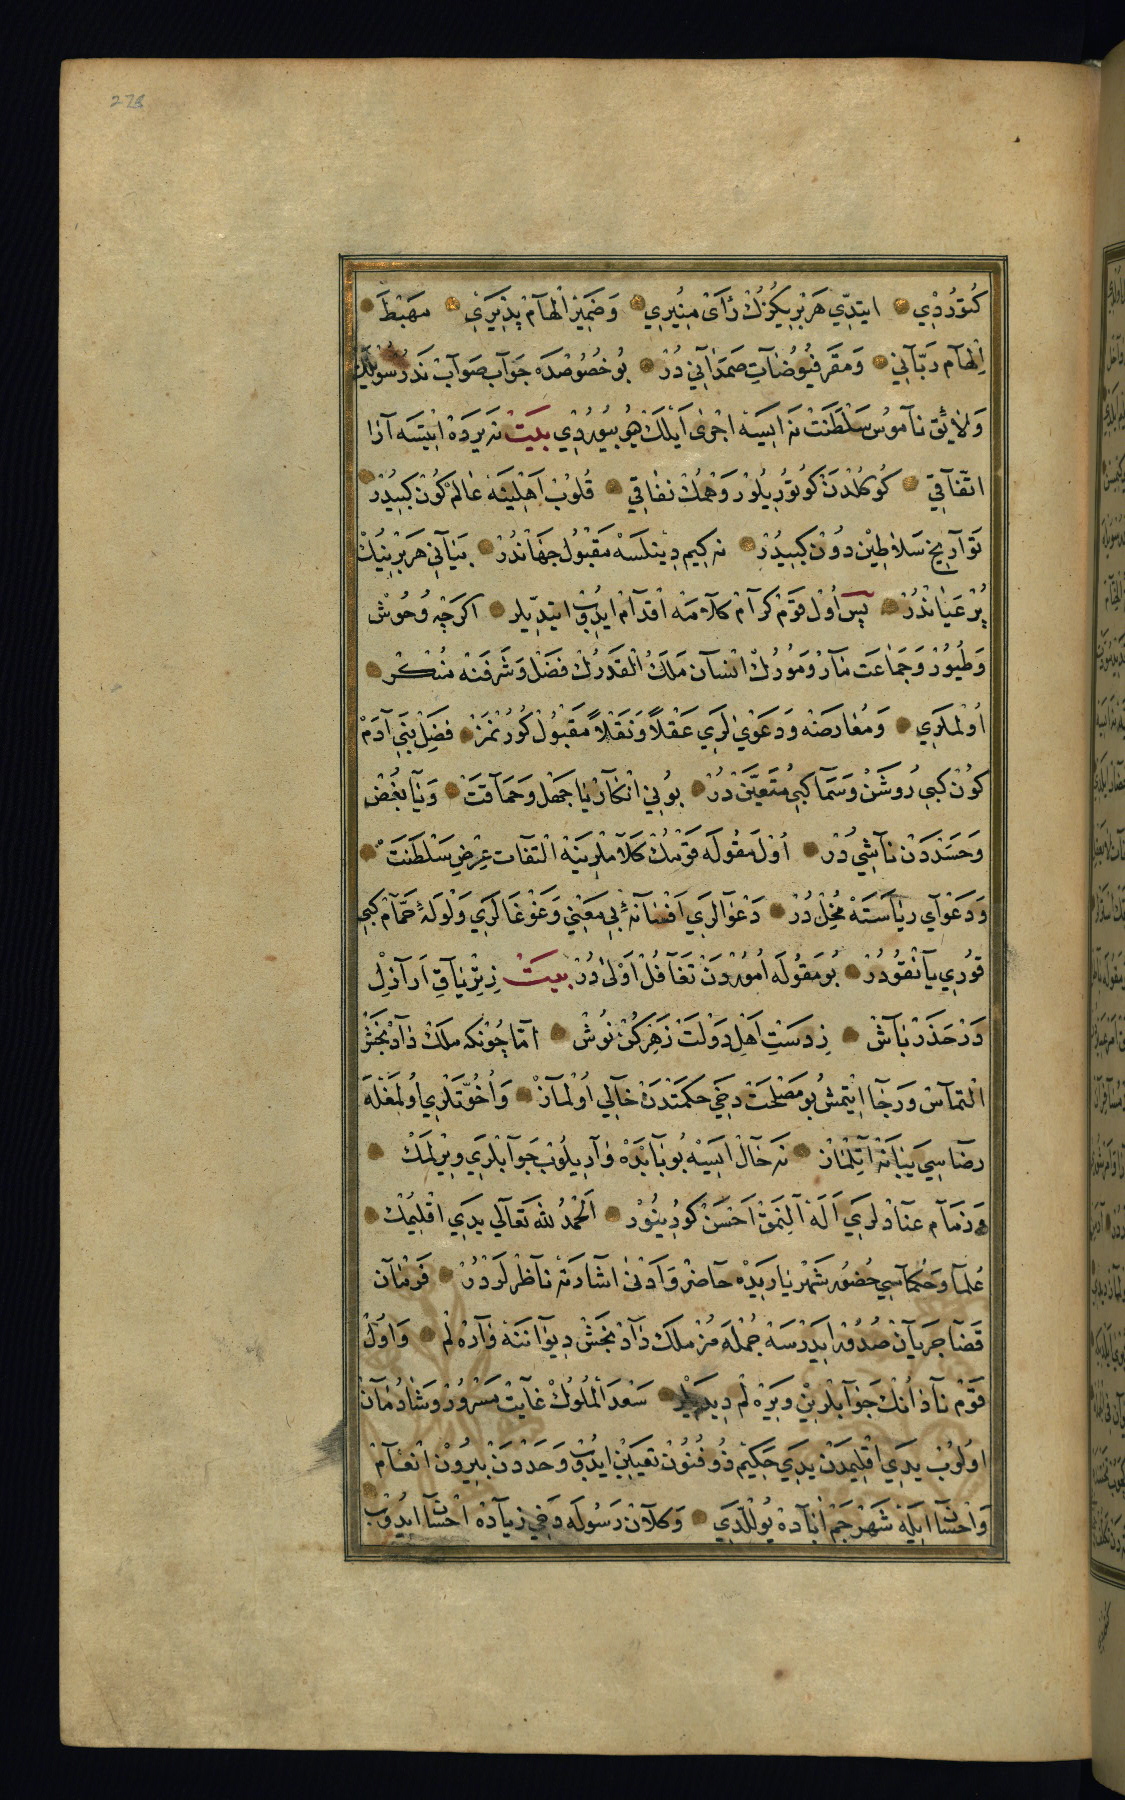 كُتُورْدِي ايتدّي هَر بِرِيكُزُكْ رَأىِ مُنِيرِي وَضَمِيرِ الْهَامْ پَذِيرَىِ مَهْبَطَ
اِلْهَامِ رَبَّانِي وَمَقَرَّ فُيُوضَاتِ صَمَدَانِي دُرْ بُو خُصُوصْدَه جَوَابِ صَوَابْ نَدُرْ سُوَيْلَيكْ
وَلايِق نَامُوسِ سَلْطَنَتْ نَه اِيسَه اِجْرَى اَيْلَكْ دِيُو بيُورُدِي بَيْتْ نَه يَرَدَه اِيتْسَه آرَا
اتّفَاقِي كُوكُلْدَنْ كُوتُرِيلُورْ وَهْمُكْ نِفَاقِي قُلُوبْ اَهْلِينَه عَالَمْ كُونْ كِبِيدُرْ
تَوَارِيخِ سَلَاطِينْ دُونْ كِبِيدُرْ نَه كِيم دِينْلسَه مَقْبُولِ جَهَانْدُرْ بَيَانِي هَر بِرِينِيكْ
پُرْ عَيَانْدُرْ پَسْ اُولْ قَوْمِ كِرَامْ كَلَامَه اَقْدَامْ ايدُوبْ ايتدّيلر اكَرْچَه وُحُوشْ
وَطُيُورْ وَجَمَاعَتِ مَارْ وَمُورُكْ انْسَانِ مَلَكُ الْقَدَرُكْ فَضْلْ وَشَرَفَنَه مُنْكِرْ
اُولْمَلَرِي وَمُعَارَضَه وَدَعْوَيْ لَرِي عَقْلاً وَنَقْلاً مَقْبُولْ كُورُنْمَزْ فَضْلِ بَنِي آدَمْ
كُونْ كِبِي رُوشَنْ وَسَمَا كِبِي مُتَعَيّنْ دُرْ بُونِي انْكَارْ يَا جَهْلْ وَحَمَاقَتْ وَيَا بُغْضْ
وَحَسَدْدَنْ نَاشِي دُرْ اُولْ مَقُولَه قَوْمُكْ كَلَامْلَرِينَه الْتِفَاتْ عِرْضِ سَلْطَنَتْ
وَدَعْوَايِ رِيَاسَتَه مُخِلْ دُرْ دَعْوَالَرِي اَفْسَانَهٔ بِي مَعْنِي وَغَوْغَالَرِي وَلْوَلَهٔ حَمَّامْ كِبِي
قُورِي يَانْقُودُرْ بُو مَقُولَه اُمُورْدَنْ تَغَافُلْ اَوْلَى دُرْ بيتْ زِتِرْيَاقِ اَرَاذِلْ
دَرْ حَذَرْ بَاشْ زِ دَسْتِ اَهْلِ دَوْلَتْ زَهْرِ كُنْ نُوشْ امّا چُونكه مَلِكْ دَادْ بَخْشْ
الْتِمَاسْ وَرَجَا ايتْمِشْ بُو مَصْلَحَتْ دَخِي حِكْمَتْدَنْ خَالِي اُولْمَازْ وَاُخُوّتَلَرِي اُولْمَغْلَه
رِضَاسِي يَبَانَه آتِلْمَازْ نَه حَالْ اِيسَه بُو بَابْدَه وَارِيلُوبْ جَوَابْلَرِي ويرِلْمَكْ
وَزِمَامِ عِنَادْلَرِي اَلَه آلِنْمَقْ اَحْسَنْ كُورِينُورْ اَلْحَمْدُ للهِ تَعَالَي يدِي اقْلِيمُكْ
عُلَمَا وَحُكَمَاسِي حُضُورِ شَهْرِيَارِيدَه حَاضِرْ وَاَدْنَى اشَارَتَه نَاظِرْلَرْدُرْ فَرْمَانْ
قَضَا جَرَيَانْ صُدُورْ ايدَرْسَه جُمْلَه مُزْ مَلِكْ دَادْ بَخْشْ دِيوَانَنَه وَارَه لِمْ وَاُولْ
قَوْمِ نَادَانُكْ جَوَابْلَرِينْ ويرَه لِمْ دِيدِيلَر سَعْدُ الْمُلُوكْ غَايَتْ مَسْرُورْ وَشَادُمَانْ
اولُوبْ يدِي اقْلِيمَدَنْ يدِي حَكِيمْ ذُو فُنُونْ تَعْيِينْ ايدُوبْ وَحَدْدَنْ بيرُونْ انْعَامْ
وَاحْسَانْ ايلَه شَهْرِ جَمْ اَبَادَه يُولْلَدِي وَكَلَانْ رَسُولَه دَخِي زِيَادَه احْسَانْ ايدُوبْ